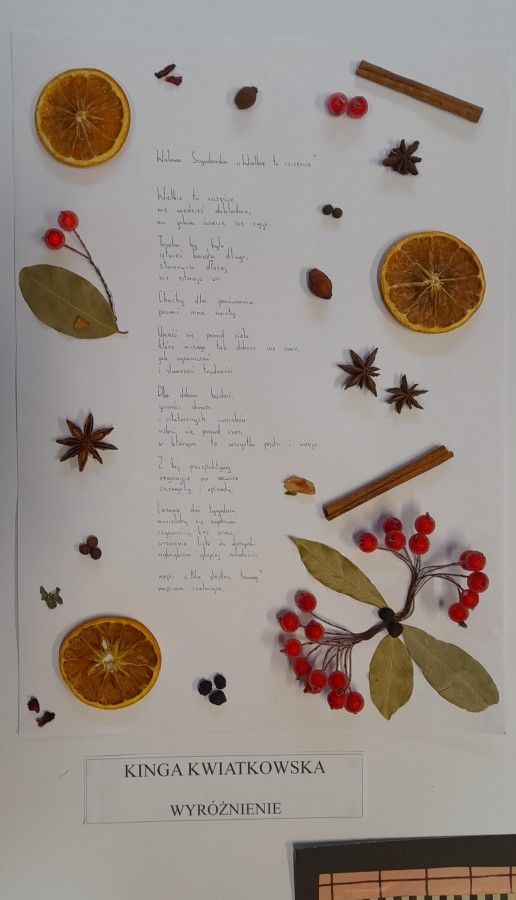 Wisława Szymborska „Wielkie to szczęście"
Wielkie to szczęście
nie wiedzieć dokładnie,
na jakim świecie się żyje.
Trzeba by było
istnieć bardzo długo,
stanowczo dłużej
niż istnieje on.
Choćby dla porównania
poznać inne światy.
Unieść się ponad ciało,
które niczego tak dobrze nie umie,
jak ograniczać
i stwarzać trudności.
Dla dobra badań,
jasności obrazu
i ostatecznych wniosków
wzbić się ponad czas,
w którym to wszystko pędzi i wiruje.
Z tej perspektywy
żegnajcie na zawsze
szczegóły i epizody.
Liczenie dni tygodnia
musiałoby się wydawać
czynnością bez sensu,
wrzucenie listu do skrzynki
wybrykiem głupiej młodości,
napis „Nie deptać trawy"
napisem szalonym.
KINGA KWIATKOWSKA
WYRÓŻNIENIE